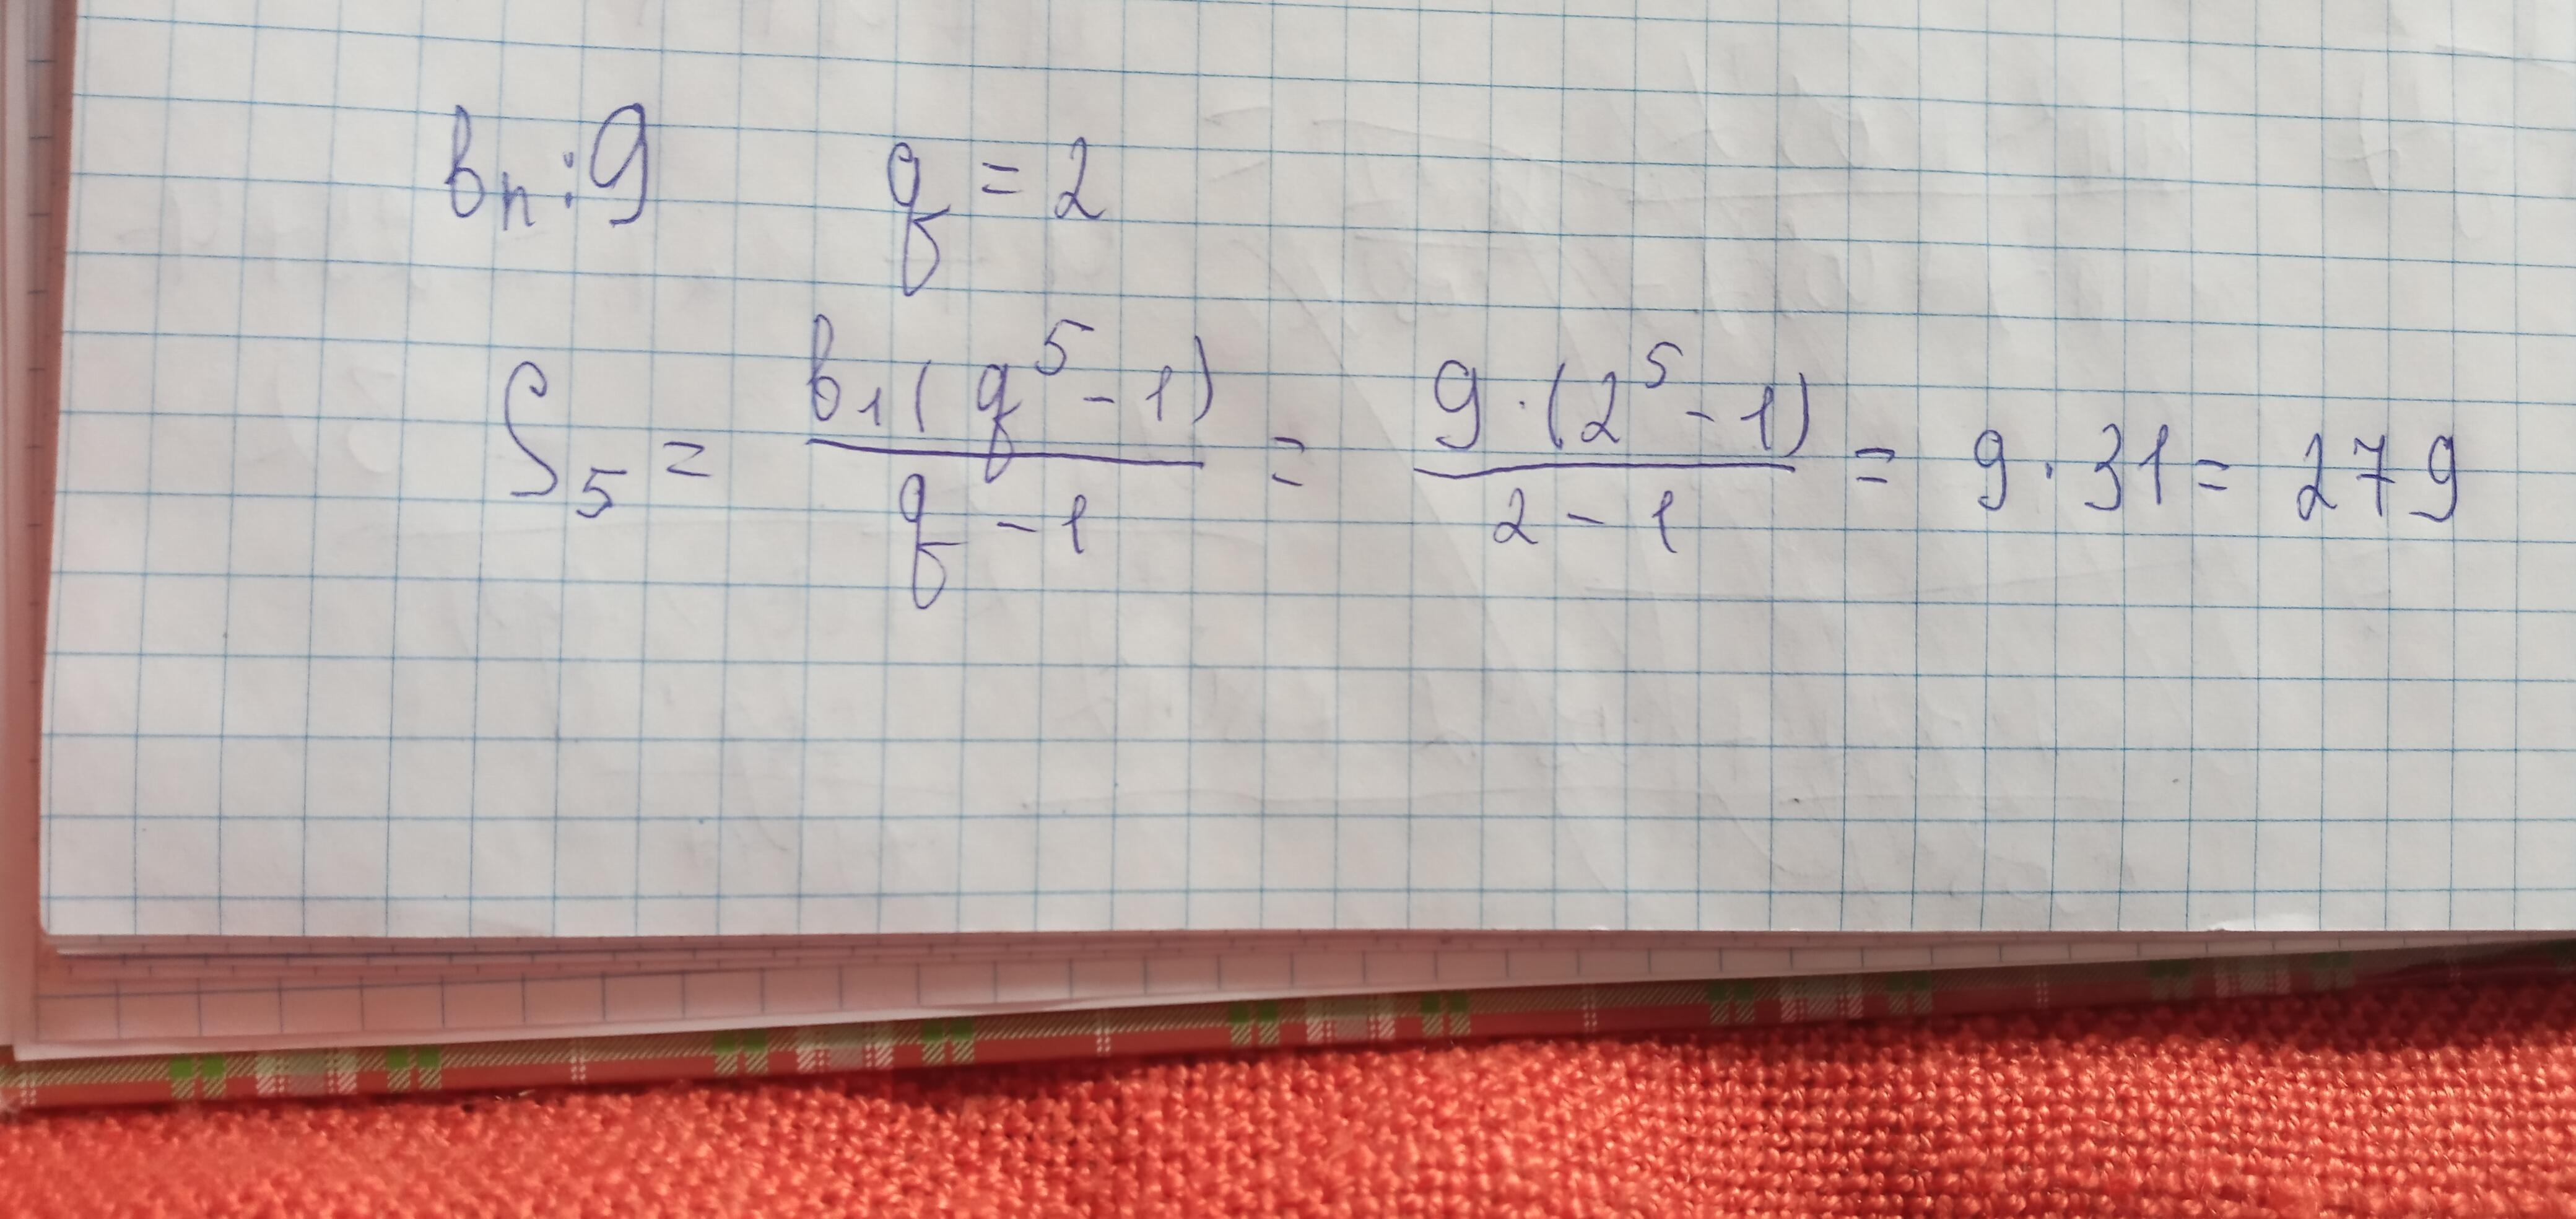 bₙ:9 q = 2
S₅ = b₁(q⁵-1)/q-1 = 9·(2⁵-1)/2-1 = 9·31= 279